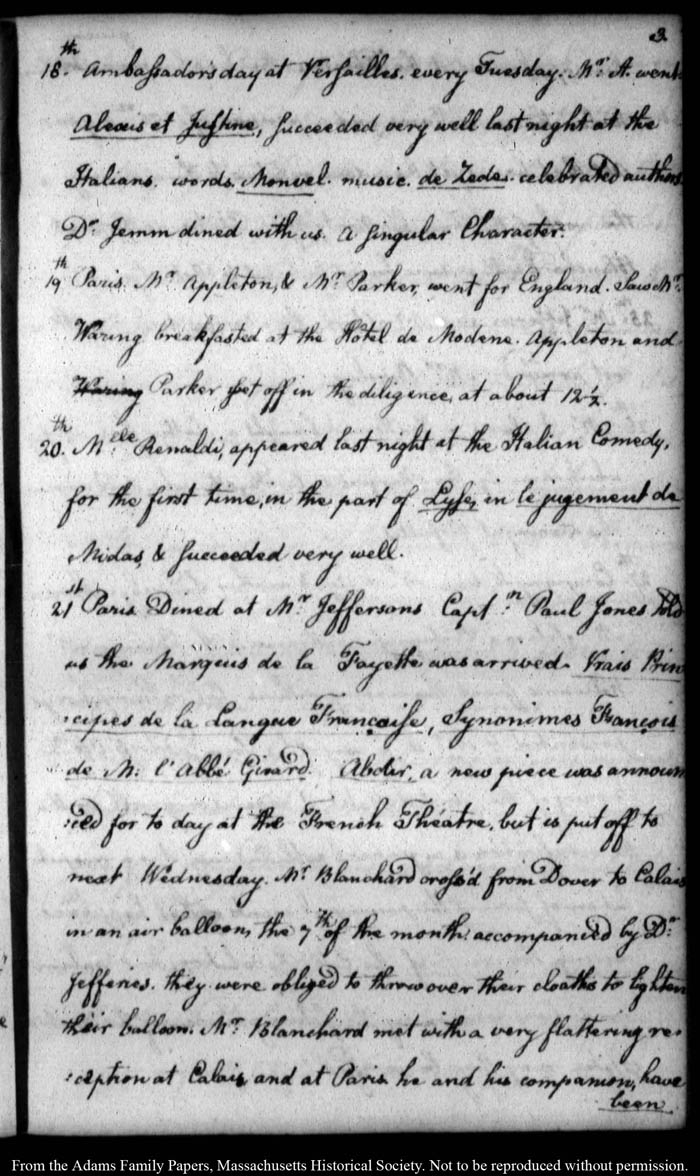 3.
18.th Ambassadors day at Versailles. every Tuesday. Mr. A. went
Alexis et Justine, succeeded very well last night at the
Italians. words. Monvel. music. de Zedes. celebrated authors.
Dr. Jemm dined with us. A singular Character.
19th Paris. Mr. Appleton, & Mr. Parker, went for England. Saw Mr.
Waring breakfasted at the Hotel de Modene. Appleton and
Waring Parker set off in the diligence, at about 12 1/2.
20.th Melle. Renaldi, appeared last night at the Italian Comedy,
for the first time, in the part of Lyse, in le jugement de
Midas, & succeeded very well.
21st Paris. Dined at Mr. Jeffersons Captn. Paul Jones told
us the Marquis de la Fayette was arrived. Vrais Prin
:cipes de la Langue Françoise, Synonimes François
de M: l'Abbé Girard. Abdir, a new piece was announ
:ced for to day at the French Theatre, but is put off to
next Wednesday. Mr. Blanchard cross'd from Dover to Calais
in an air balloon, the 7th of the month: accompanied by Dr.
Jefferies. they were obliged to throw over their cloaths to lighten
their balloon. Mr. Blanchard met with a very flattering re-
:ception at Calais, and at Paris. he and his companion, have
been
From the Adams Family Papers, Massachusetts Historical Society. Not to be reproduced without permission.